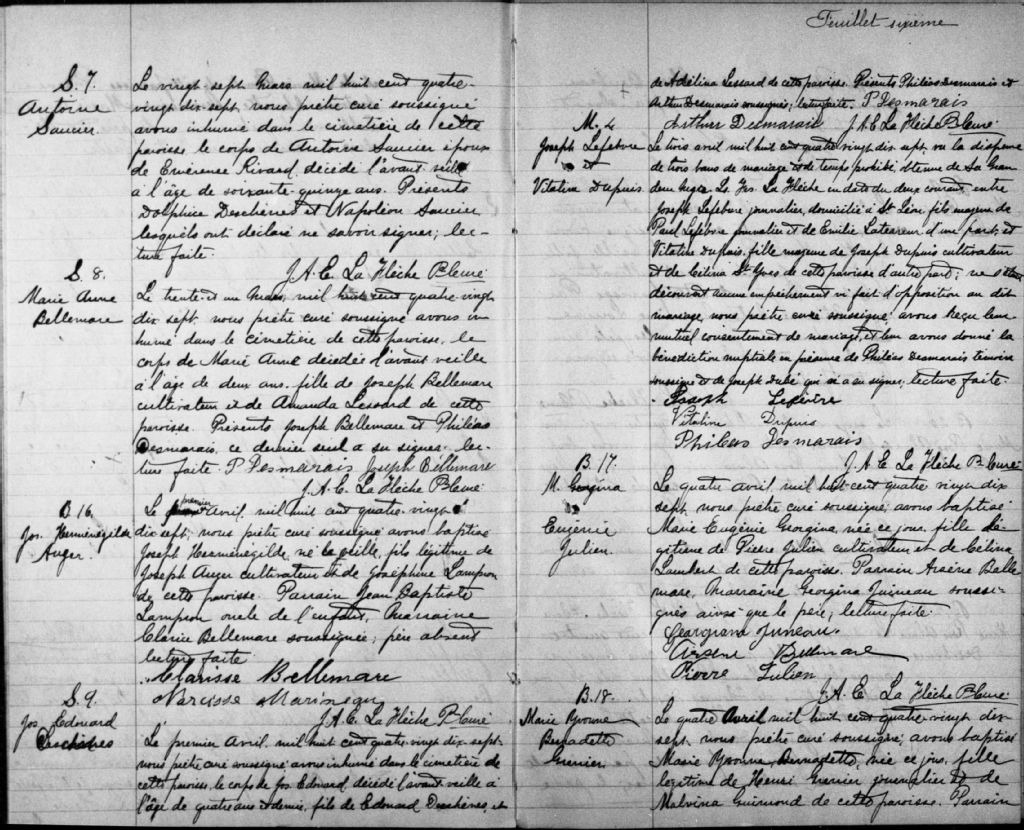 S. 7.
Antoine
Saucier.
Le vingt sept Mars mil huit cent quatre-
vingt dix sept, nous prêtre curé soussigné
avons inhumé dans le cimetière de cette
paroisse le corps de Antoine Saucier époux
de Emérense Rivard, décédé l'avant veille
à l'âge de soixante quinze ans. Présents
Dolphice Deschênes et Napoléon Saucier
lesquels ont déclaré ne savoir signer; lec-
ture faite.
J. A. E. La Flèche Ptre Curé
S. 8.
Marie Anne
Bellemare
Le trente et un Mars, mil huit cent quatre-vingt
dix sept, nous prêtre curé soussigné avons in-
humé dans le cimetière de cette paroisse, le
corps de Marie Anne décédée l'avant veille
à l'âge de deux ans, fille de Joseph Bellemare
cultivateur et de Amanda Lessard de cette
paroisse. Présents Joseph Bellemare et Philéas
Desmarais, ce dernier seul a su signer; lec-
ture faite. P Desmarais Joseph Bellemare
J. A. E. La Flèche Ptre Curé
B 16.
Jos. Herménégilde
Auger.
Le premier Avril, mil huit cent quatre-vingt
dix sept, nous prêtre curé soussigné avons baptisé
Joseph Herménégilde, né la veille, fils légitime de
Joseph Auger cultivateur et de Joséphine Lampron
de cette paroisse. Parrain Jean Baptiste
Lampron oncle de l'enfant, Marraine
Clarice Bellemare soussignée; père absent
lecture faite
Clarisse Bellemare
Narcisse
J. A. E. La Flèche Ptre Curé
S. 9.
Jos. Edouard
Deschênes
Le premier Avril, mil huit cent quatre-vingt dix sept
nous prêtre curé soussigné avons inhumé dans le cimetière de
cette paroisse, le corps de Jos. Edouard, décédé l'avant veille à
l'âge de quatre ans et demie, fils de Edouard Deschênes, et
Feuillet sixième
de Adélina Lessard de cette paroisse. Présents Philéas Desmarais et
Arthur Desmarais soussignés; lecture faite. P Desmarais
Arthur Desmarais J. A. E. La Flèche Ptre Curé
M. 4
Joseph Lefebvre
et
Vitaline Dupuis
Le trois avril mil huit cent quatre vingt dix sept, vu la dispense
de trois bans de mariage et de temps prohibé, obtenue de Sa Gran
deur Mgr L. Frs. La Flèche en date du deux courant, entre
Joseph Lefebvre journalier, domicilié à St Léon, fils majeur de
Paul Lefebvre journalier et de Emilie d'une part, et
Vitaline Dupuis, fille majeure de Joseph Dupuis cultivateur
et de Célina St Yves de cette paroisse d'autre part; ne s'étant
découvert aucun empêchement ni fait d'opposition au dit
mariage, nous prêtre curé soussigné avons reçu leur
mutuel consentement de mariage, et leur avons donné la
bénédiction nuptiale en présence de Philéas Desmarais témoin
soussigné et de Joseph Dubé qui n'a su signer; lecture faite.
Joseph Lefèvre
Vitaline Dupuis
Phileas Desmarais
J. A. E. La Flèche Ptre Curé
B. 17.
M. Georgina
Eugénie
Julien.
Le quatre Avril, mil huit cent quatre vingt dix
sept, nous prêtre curé soussigné, avons baptisé
Marie Eugénie Georgina, née ce jour, fille lé-
gitime de Pierre Julien cultivateur et de Célina
Lambert de cette paroisse. Parrain Arsène Belle
mare, Marraine Georgina Juineau soussi-
gnés ainsi que le père; lecture faite.
Georgiana Juneau.
Arsène Bellemare
Pierre Julien
J. A. E. La Flèche Ptre Curé
B. 18.
Marie Yvonne
Bernadette
Grenier
Le quatre Avril mil huit cent quatre-vingt dix
sept, nous prêtre curé soussigné, avons baptisé
Marie Yvonne Bernadette, née ce jour, fille
légitime de Henri Grenier journalier et de
Malvina Guimond de cette paroisse. Parrain